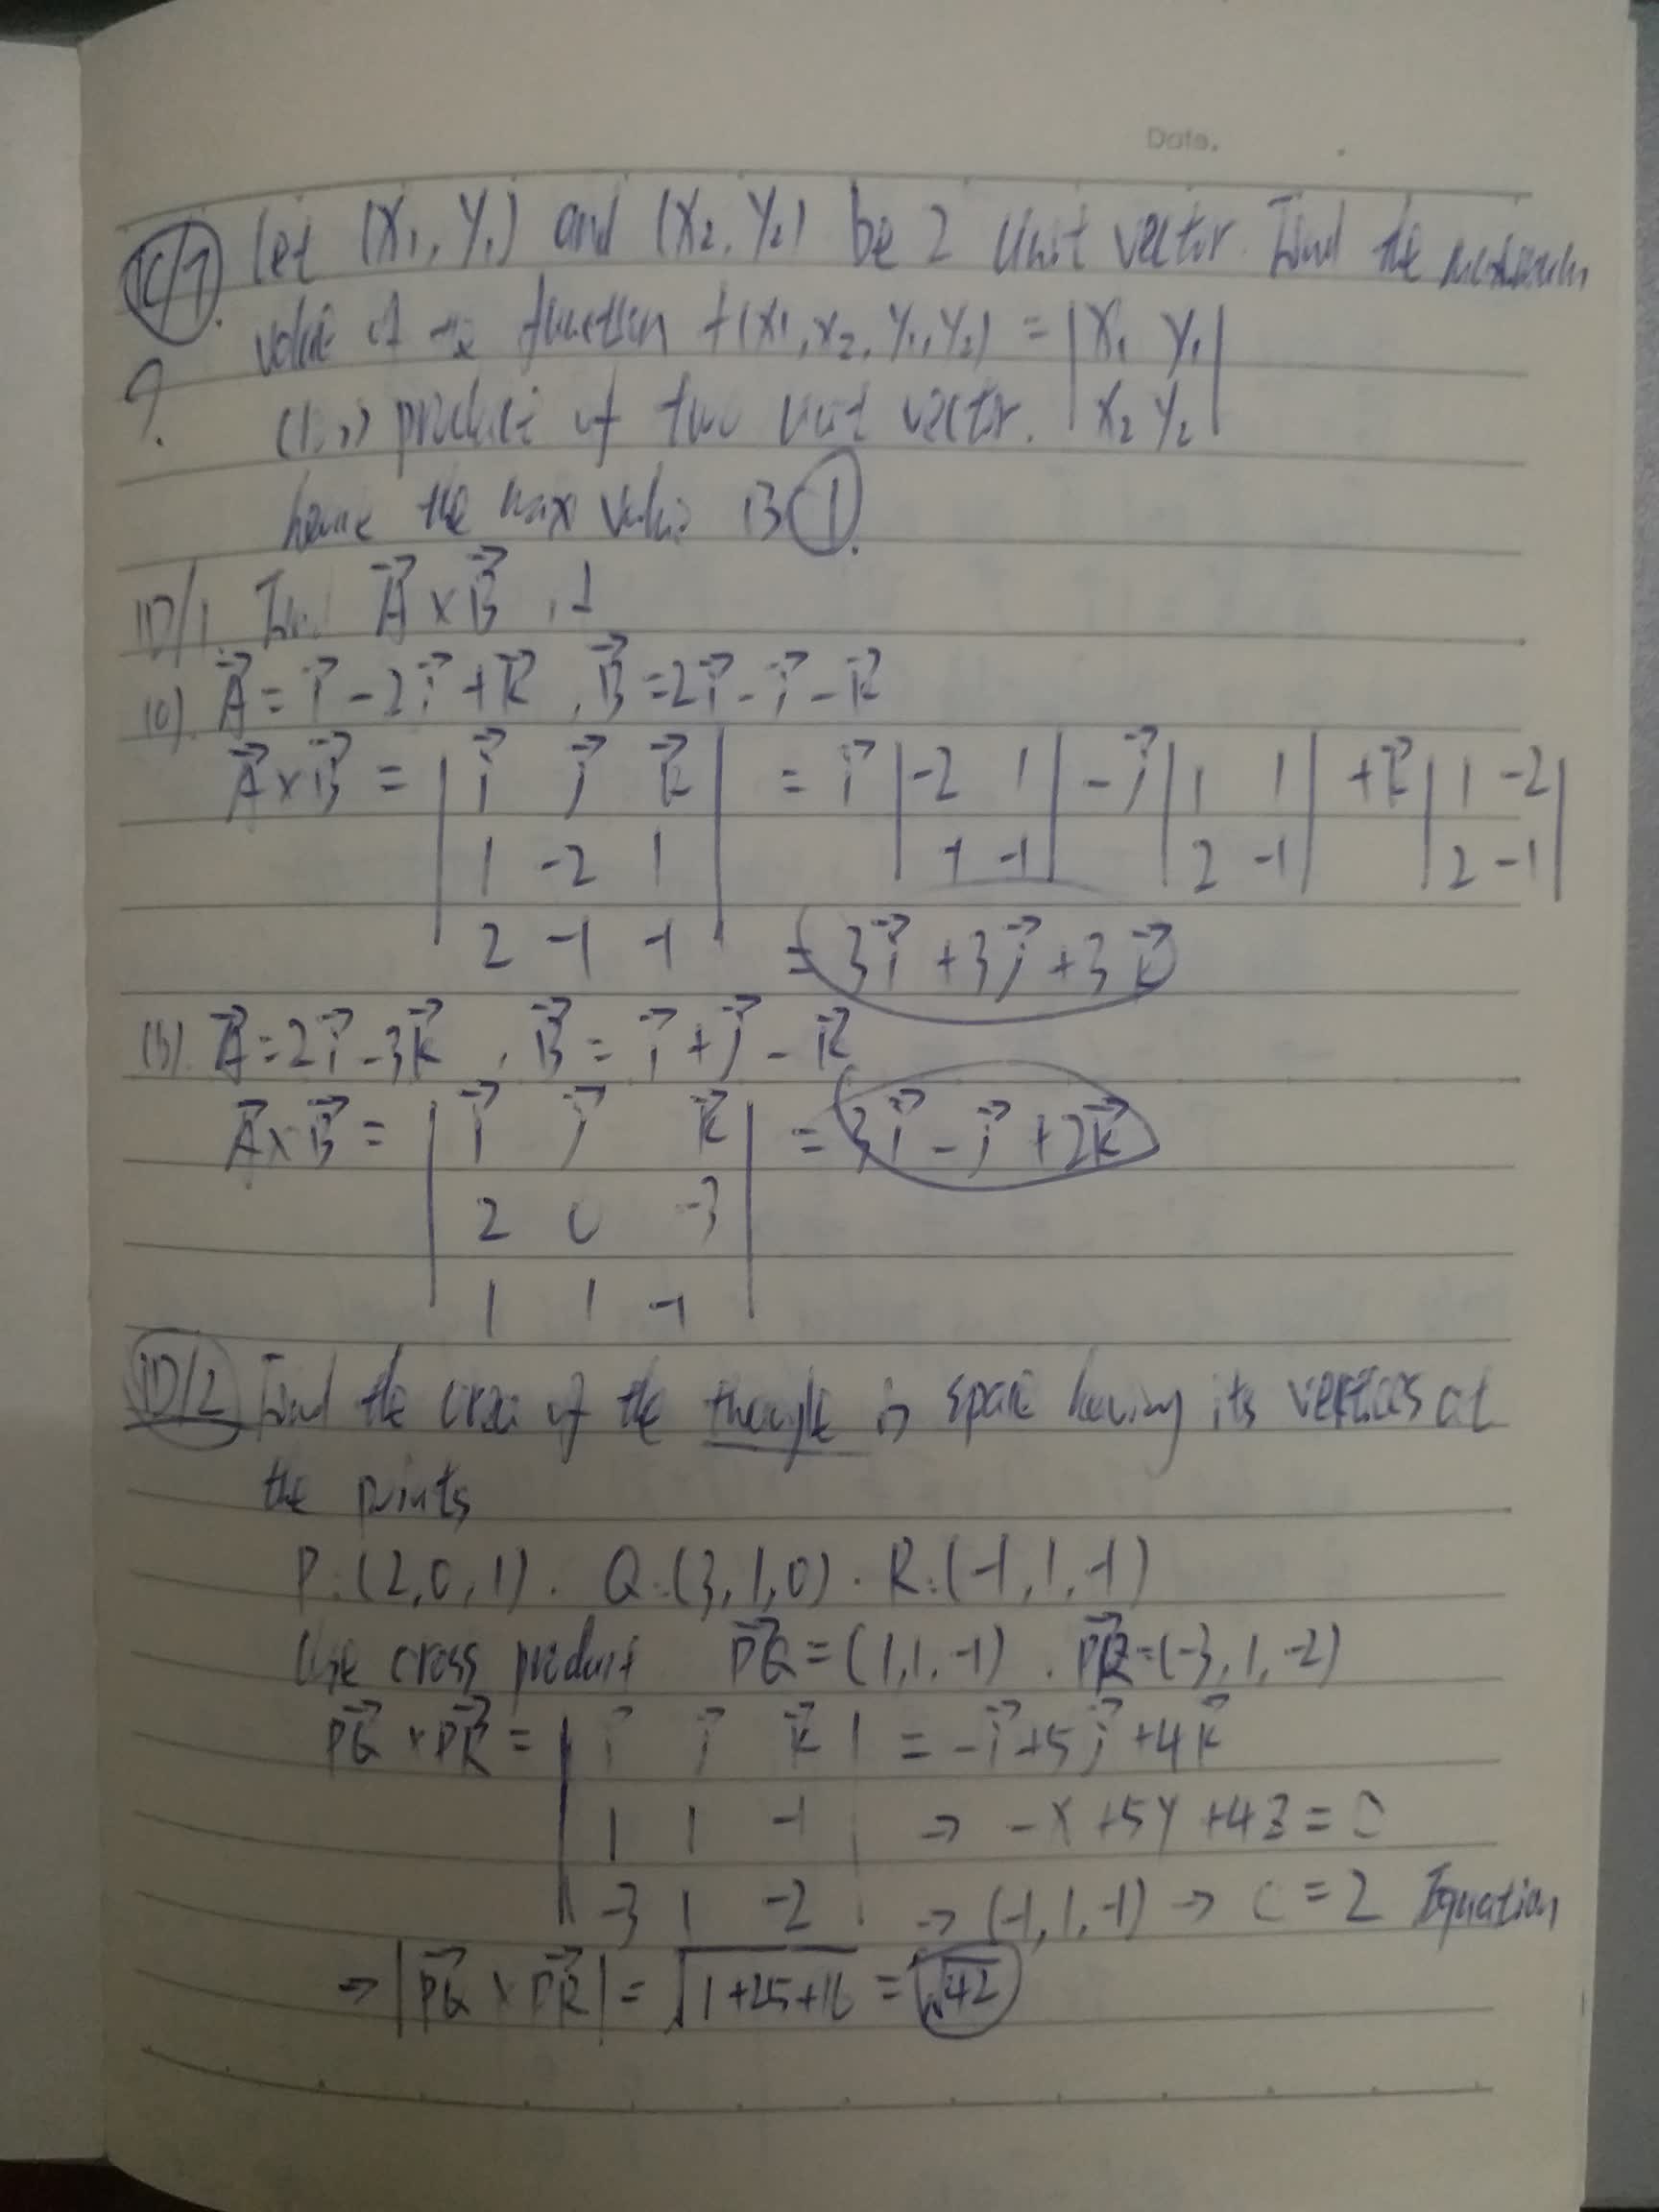 Date.
1C/7. Let (X₁, Y₁) and (X₂, Y₂) be 2 unit vector. Find the maximum
value of the function f(x₁, x₂, y₁, y₂) = | X₁ Y₁ |
? | X₂ Y₂ |
product of two unit vector.
hence the max value is 1.
1D/1. Find A⃗ × B⃗, 1
(a). A⃗ = i⃗ - 2j⃗ + k⃗, B⃗ = 2i⃗ - j⃗ - k⃗
A⃗ × B⃗ = | i⃗ j⃗ k⃗ | = i⃗ | -2 1 | - j⃗ | 1 1 | + k⃗ | 1 -2 |
| 1 -2 1 | | -1 -1 | | 2 -1 | | 2 -1 |
| 2 -1 -1 | = 3i⃗ + 3j⃗ + 3k⃗
(b). A⃗ = 2i⃗ - 3k⃗, B⃗ = i⃗ + j⃗ - k⃗
A⃗ × B⃗ = | i⃗ j⃗ k⃗ | = 3i⃗ - j⃗ + 2k⃗
| 2 0 -3 |
| 1 1 -1 |
1D/2 Find the area of the triangle in space having its vertices at
the points
P: (2, 0, 1). Q: (3, 1, 0). R: (-1, 1, -1)
Use cross product PQ⃗ = (1, 1, -1). PR⃗ = (-3, 1, -2)
PQ⃗ × PR⃗ = | i⃗ j⃗ k⃗ | = -i⃗ + 5j⃗ + 4k⃗
| 1 1 -1 | → -x + 5y + 4z = C
| -3 1 -2 | → (-1, 1, -1) → C = 2 Equation
⇒ |PQ⃗ × PR⃗| = √(1+25+16) = √42